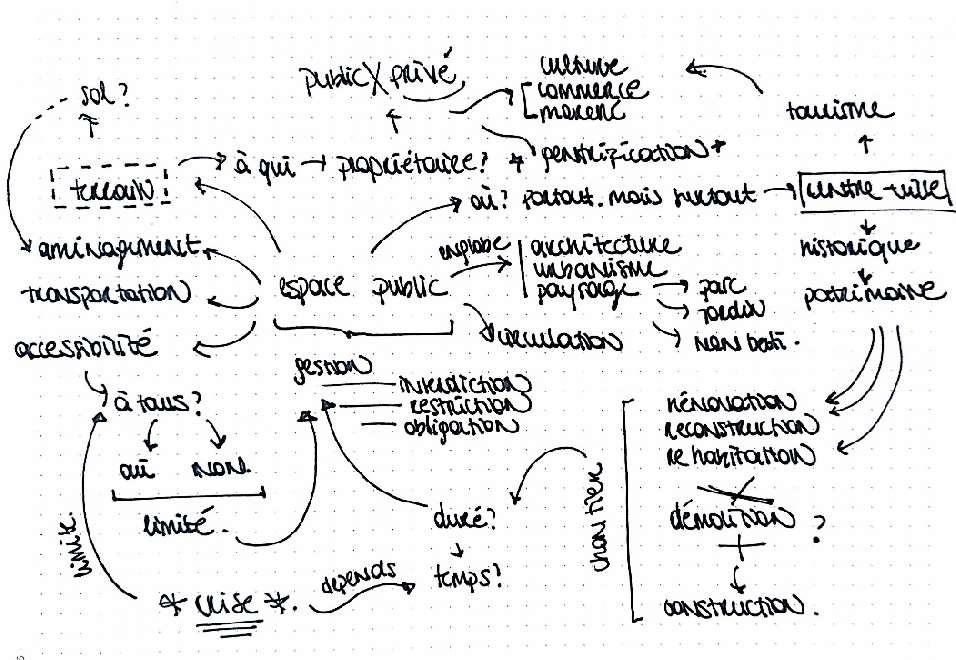 public X privé
culture
commerce
sol?
tourisme
à qui → propriétaire?
terrain
où? partout. mais surtout → centre-ville
aménagement
englobe
architecture
historique
urbanisme
transportation
espace public
paysage
parc
patrimoine
jardin
accessibilité
circulation
non bati.
gestion
interdiction
à tous?
restriction
rénovation
obligation
reconstruction
rehabitation
oui non.
limité.
duré?
démolition ?
chantier
limite.
temps?
depends
* crise *.
construction.